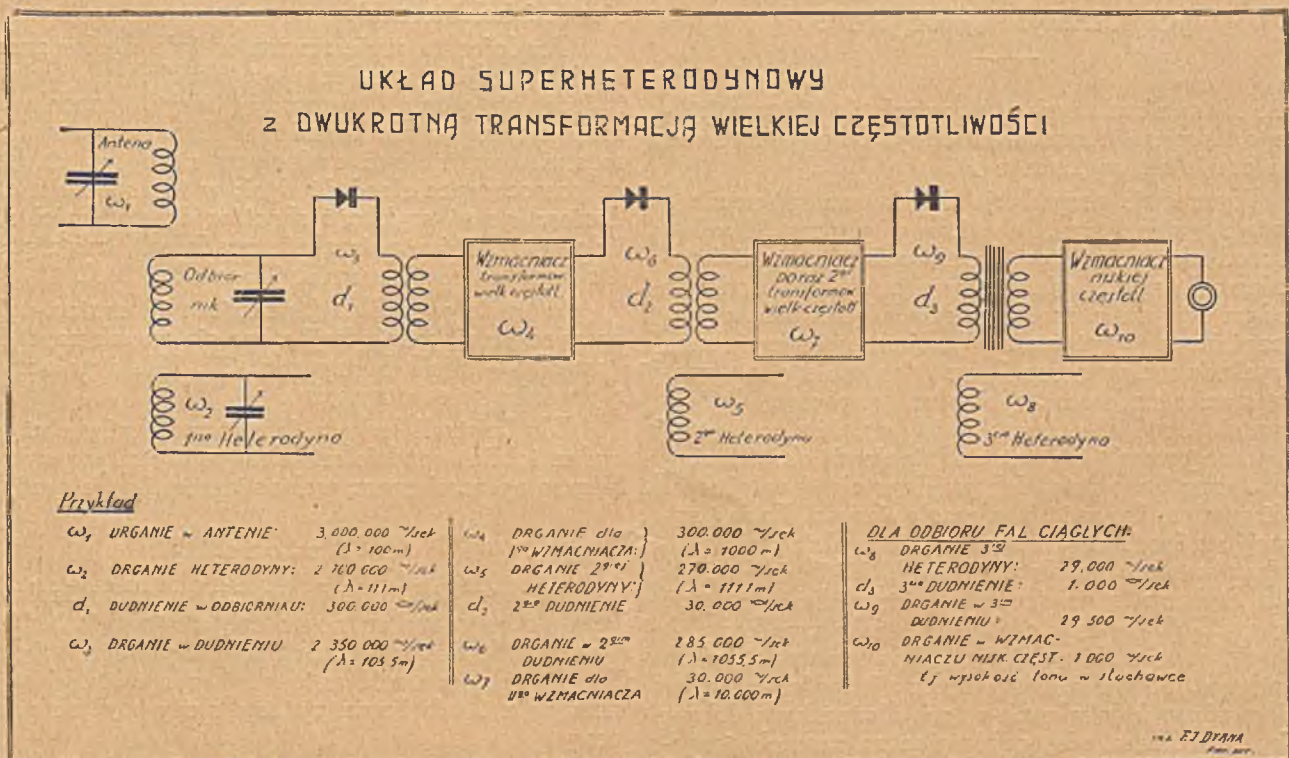 UKŁAD SUPERHETERODYNOWY
z DWUKROTNĄ TRANSFORMACJĄ WIELKIEJ CZĘSTOTLIWOŚCI
Antena
ω₁
Odbior
nik
ω₃
d₁
Wzmacniacz
transformow
wielk. częstotl.
ω₄
ω₆
d₂
Wzmacniacz
poraz 2gi
transformow
wielk. częstotl
ω₇
ω₉
d₃
Wzmacniacz
niskiej
częstotl.
ω₁₀
ω₂
1sza Heterodyna
ω₅
2ga Heterodyna
ω₈
3cia Heterodyna
Przykład
ω₁ DRGANIE w ANTENIE: 3.000.000 ~/sek
(λ = 100m)
ω₂ DRGANIE HETERODYNY: 2.700.000 ~/sek
(λ = 111m)
d₁ DUDNIENIE w ODBIORNIKU: 300.000 ~/sek
ω₃ DRGANIE w DUDNIENIU 2 850 000 ~/sek
(λ = 105.5m)
ω₄ DRGANIE dla } 300.000 ~/sek
1go WZMACNIACZA: } (λ = 1000m)
ω₅ DRGANIE 2giej } 270.000 ~/sek
HETERODYNY: } (λ = 1111m)
d₂ 2gie DUDNIENIE 30.000 ~/sek
ω₆ DRGANIE w 2gim 285.000 ~/sek
DUDNIENIU (λ = 1055,5m)
ω₇ DRGANIE dla 30.000 ~/sek
IIgo WZMACNIACZA (λ = 10.000m)
DLA ODBIORU FAL CIĄGŁYCH:
ω₈ DRGANIE 3ciej
HETERODYNY: 29,000 ~/sek
d₃ 3cie DUDNIENIE: 1.000 ~/sek
ω₉ DRGANIE w 3cim
DUDNIENIU: 29 500 ~/sek
ω₁₀ DRGANIE w WZMAC-
NIACZU NISK. CZĘST. 1 000 ~/sek
tj wysokość tonu w słuchawce